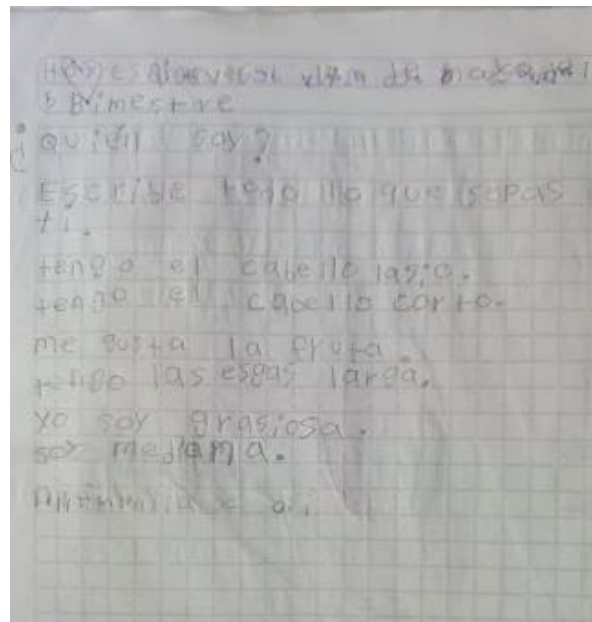 Bimestre
¿Quién soy?
Escribe todo llo que sepas
ti.
tengo el cabello lasio.
tengo el cabello corto.
me gusta la fruta.
tengo las esgas larga.
yo soy grasiosa.
soy mediana.